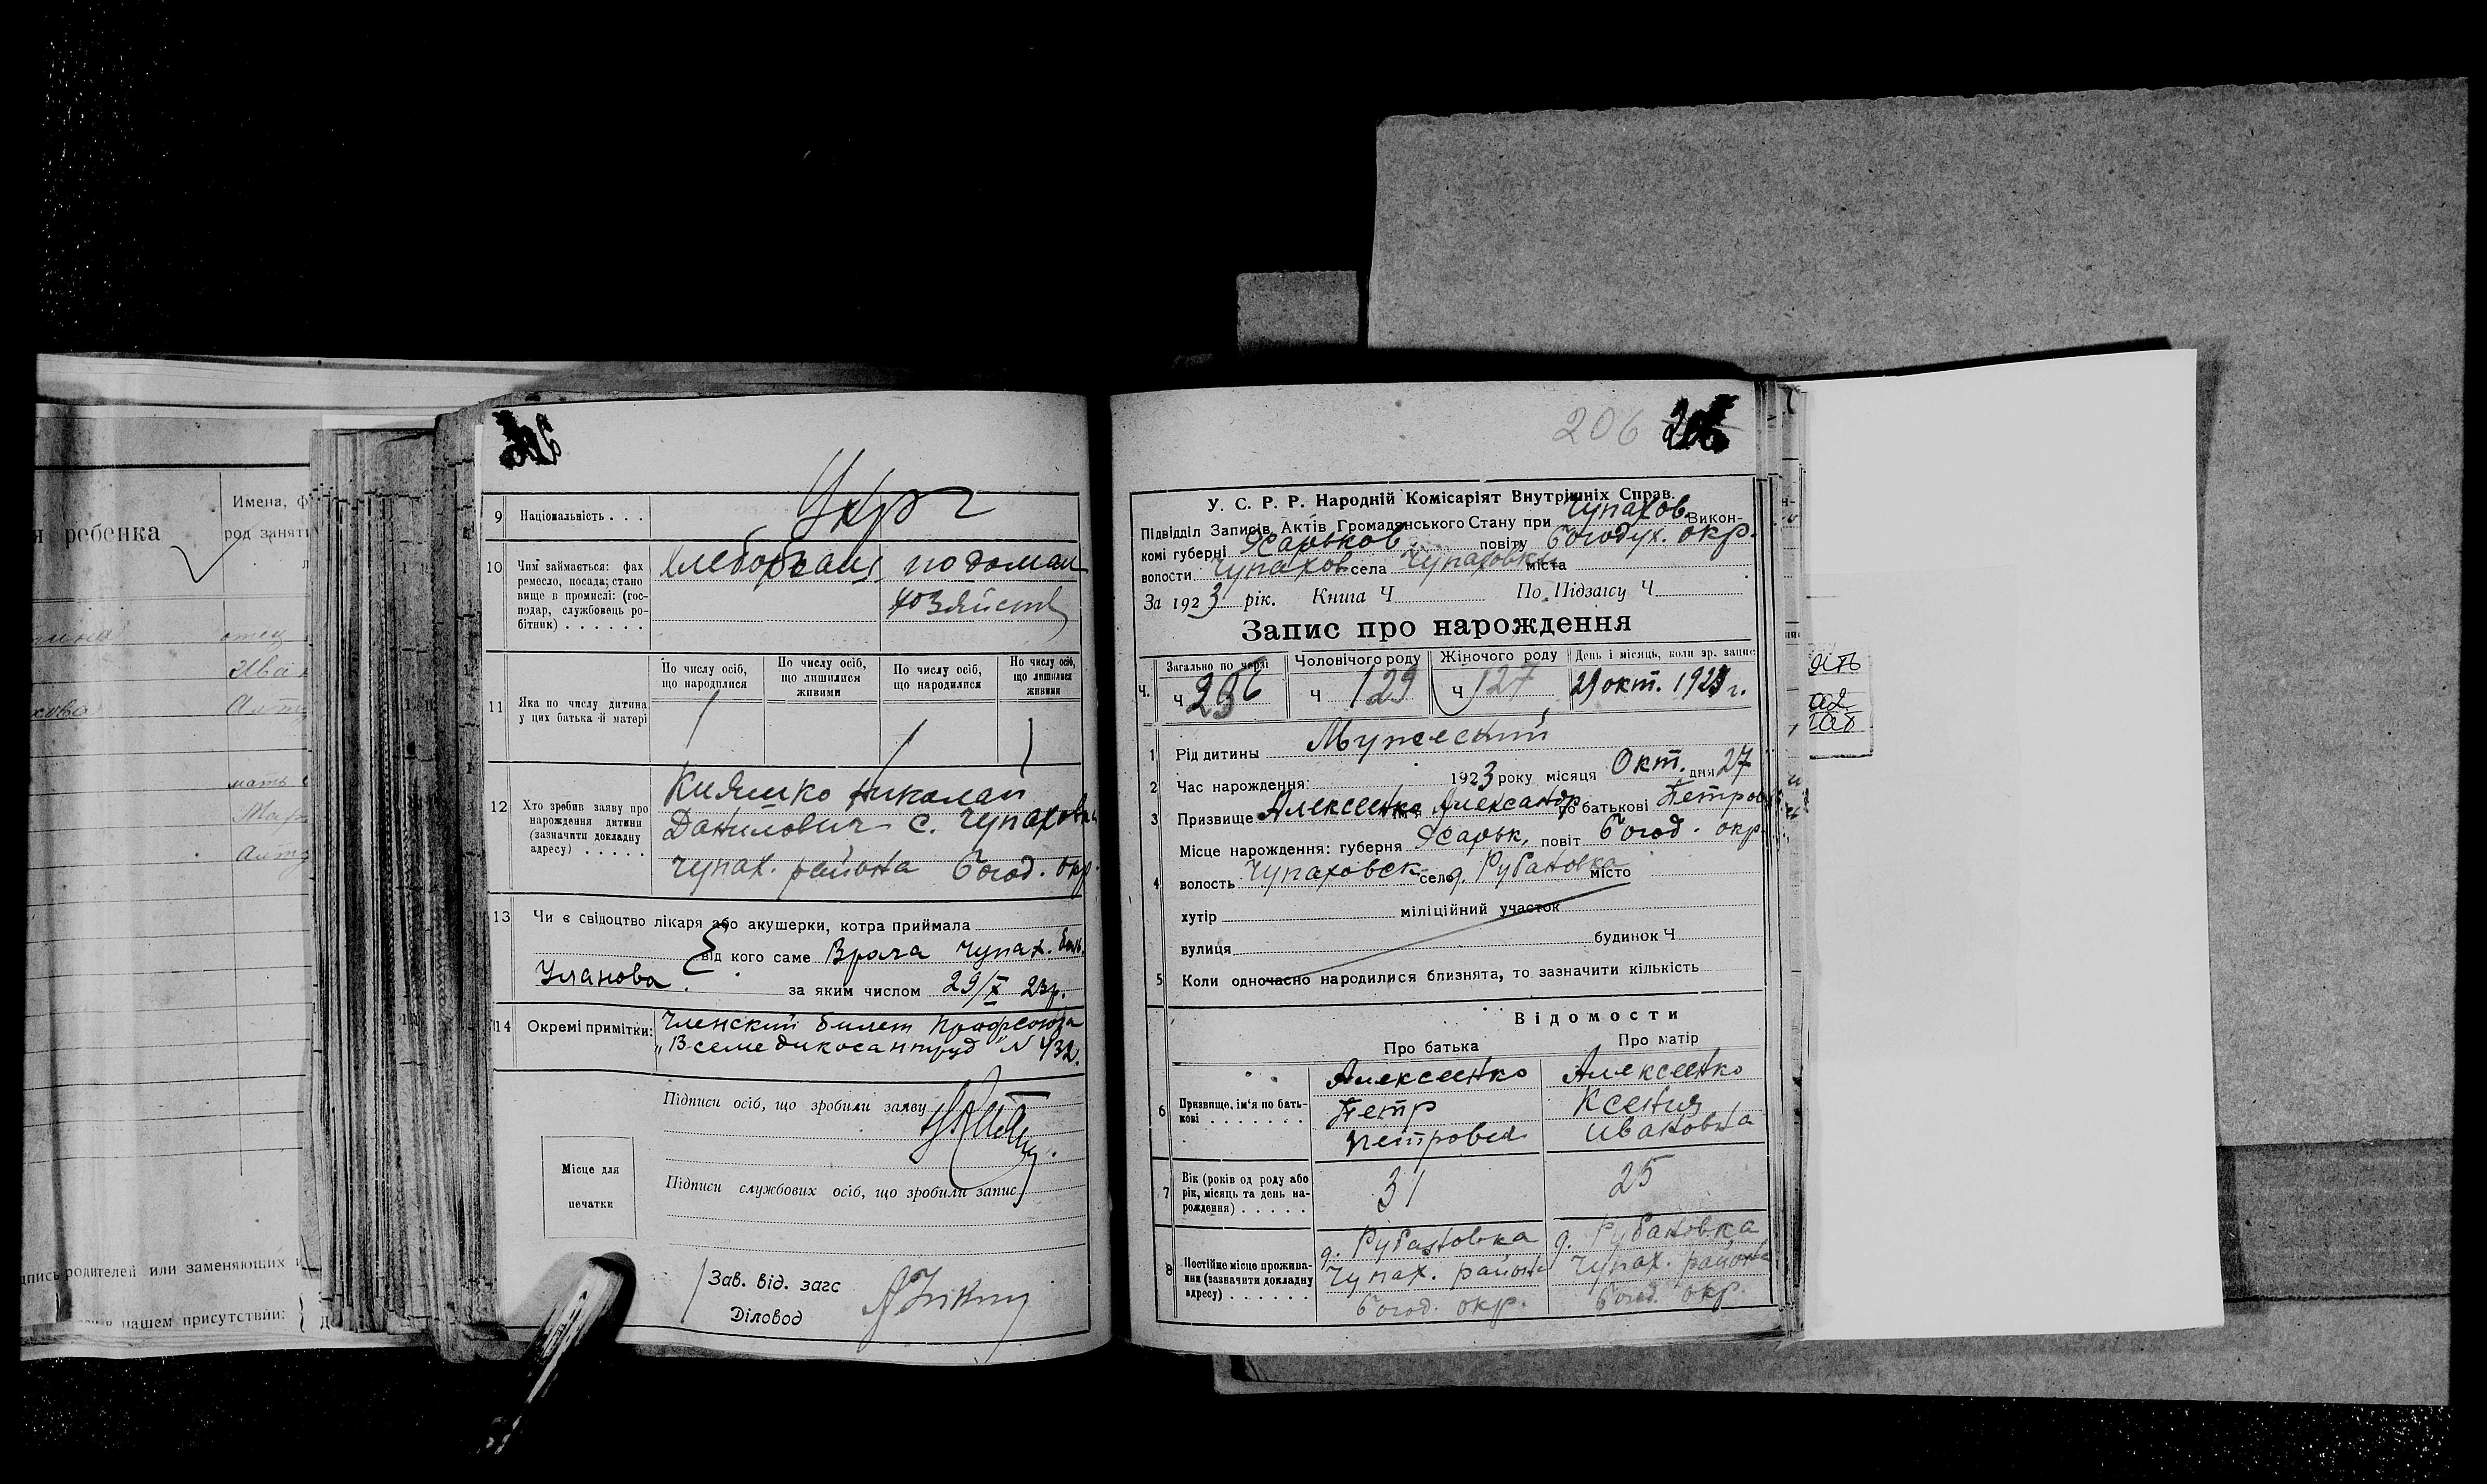 я ребенка
Имена, ф
род занят
отец
Ива
мать
Мар
родителей или заменяющих
в нашем присутствии:
9 Національність . . .
Укр
10 Чим займається: фах
ремесло, посада; стано
вище в промислі: (гос-
подар, службовець ро-
бітник) . . . . . .
по домаш
хозяйств
11 Яка по числу дитина
у цих батька й матері
По числу осіб,
що народилися
По числу осіб,
що лишилися
живими
По числу осіб,
що народилися
По числу осіб,
що лишилися
живими
1 1 1
12 Хто зробив заяву про
нарождення дитини
(зазначити докладну
адресу) . . . . .
Кияшко Николай
Данилович с. Чупаховка
Чупах. района Богод. окр.
13 Чи є свідоцтво лікаря або акушерки, котра приймала
від кого саме Врача Чупах. боль.
Уланова.
за яким числом 29/X 23г.
14 Окремі примітки:
Членский билет Профсоюза
„Всемедикосантруд" N 432.
Підписи осіб, що зробили заяву
Підписи службових осіб, що зробили запис
Місце для
печатки
Зав. від. загс
Діловод
206
У. С. Р. Р. Народній Комісаріят Внутрішніх Справ.
Підвідділ Записів Актів Громадянського Стану при Чупахов. Викон-
комі губерні Харьков. повіту Богодух. окр.
волости Чупахов села Чупаховки міста
За 1923 рік. Книга Ч По Підзагсу Ч
Запис про нарождення
Ч.
Загально по черзі
Ч 256
Чоловічого роду
Ч 129
Жіночого роду
Ч 127
День і місяць, коли зр. запис
29 окт. 1923 г.
1 Рід дитины Мужеский
2 Час нарождення: 1923 року місяця Окт. дня 27
3 Призвище Алексеенко Александр по батькові Петров
4 Місце нарождення: губерня Харьк. повіт Богод. окр.
волость Чупаховск село д. Рубановка місто
хутір міліційний участок
вулиця будинок Ч
5 Коли одночасно народилися близнята, то зазначити кількість
Відомости
Про батька
Про матір
6 Призвище, ім'я по бать-
кові . . . . . . .
Алексеенко
Петр
Петрович
Алексеенко
Ксения
Ивановна
7 Вік (років од роду або
рік, місяць та день на-
рождення) . . . . .
31
25
8 Постійне місце прожива-
ння (зазначити докладну
адресу) . . . . . .
д. Рубановка
Чупах. района
Богод. окр.
д. Рубановка
Чупах. района
Богод. окр.